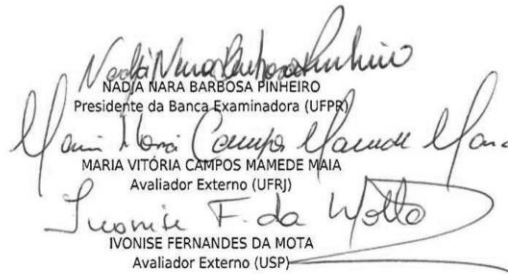 Nadja Nara Barbosa Pinheiro
NADJA NARA BARBOSA PINHEIRO
Presidente da Banca Examinadora (UFPR)
Campos Mamede
MARIA VITÓRIA CAMPOS MAMEDE MAIA
Avaliador Externo (UFRJ)
Ivonise F. da Motta
IVONISE FERNANDES DA MOTA
Avaliador Externo (USP)